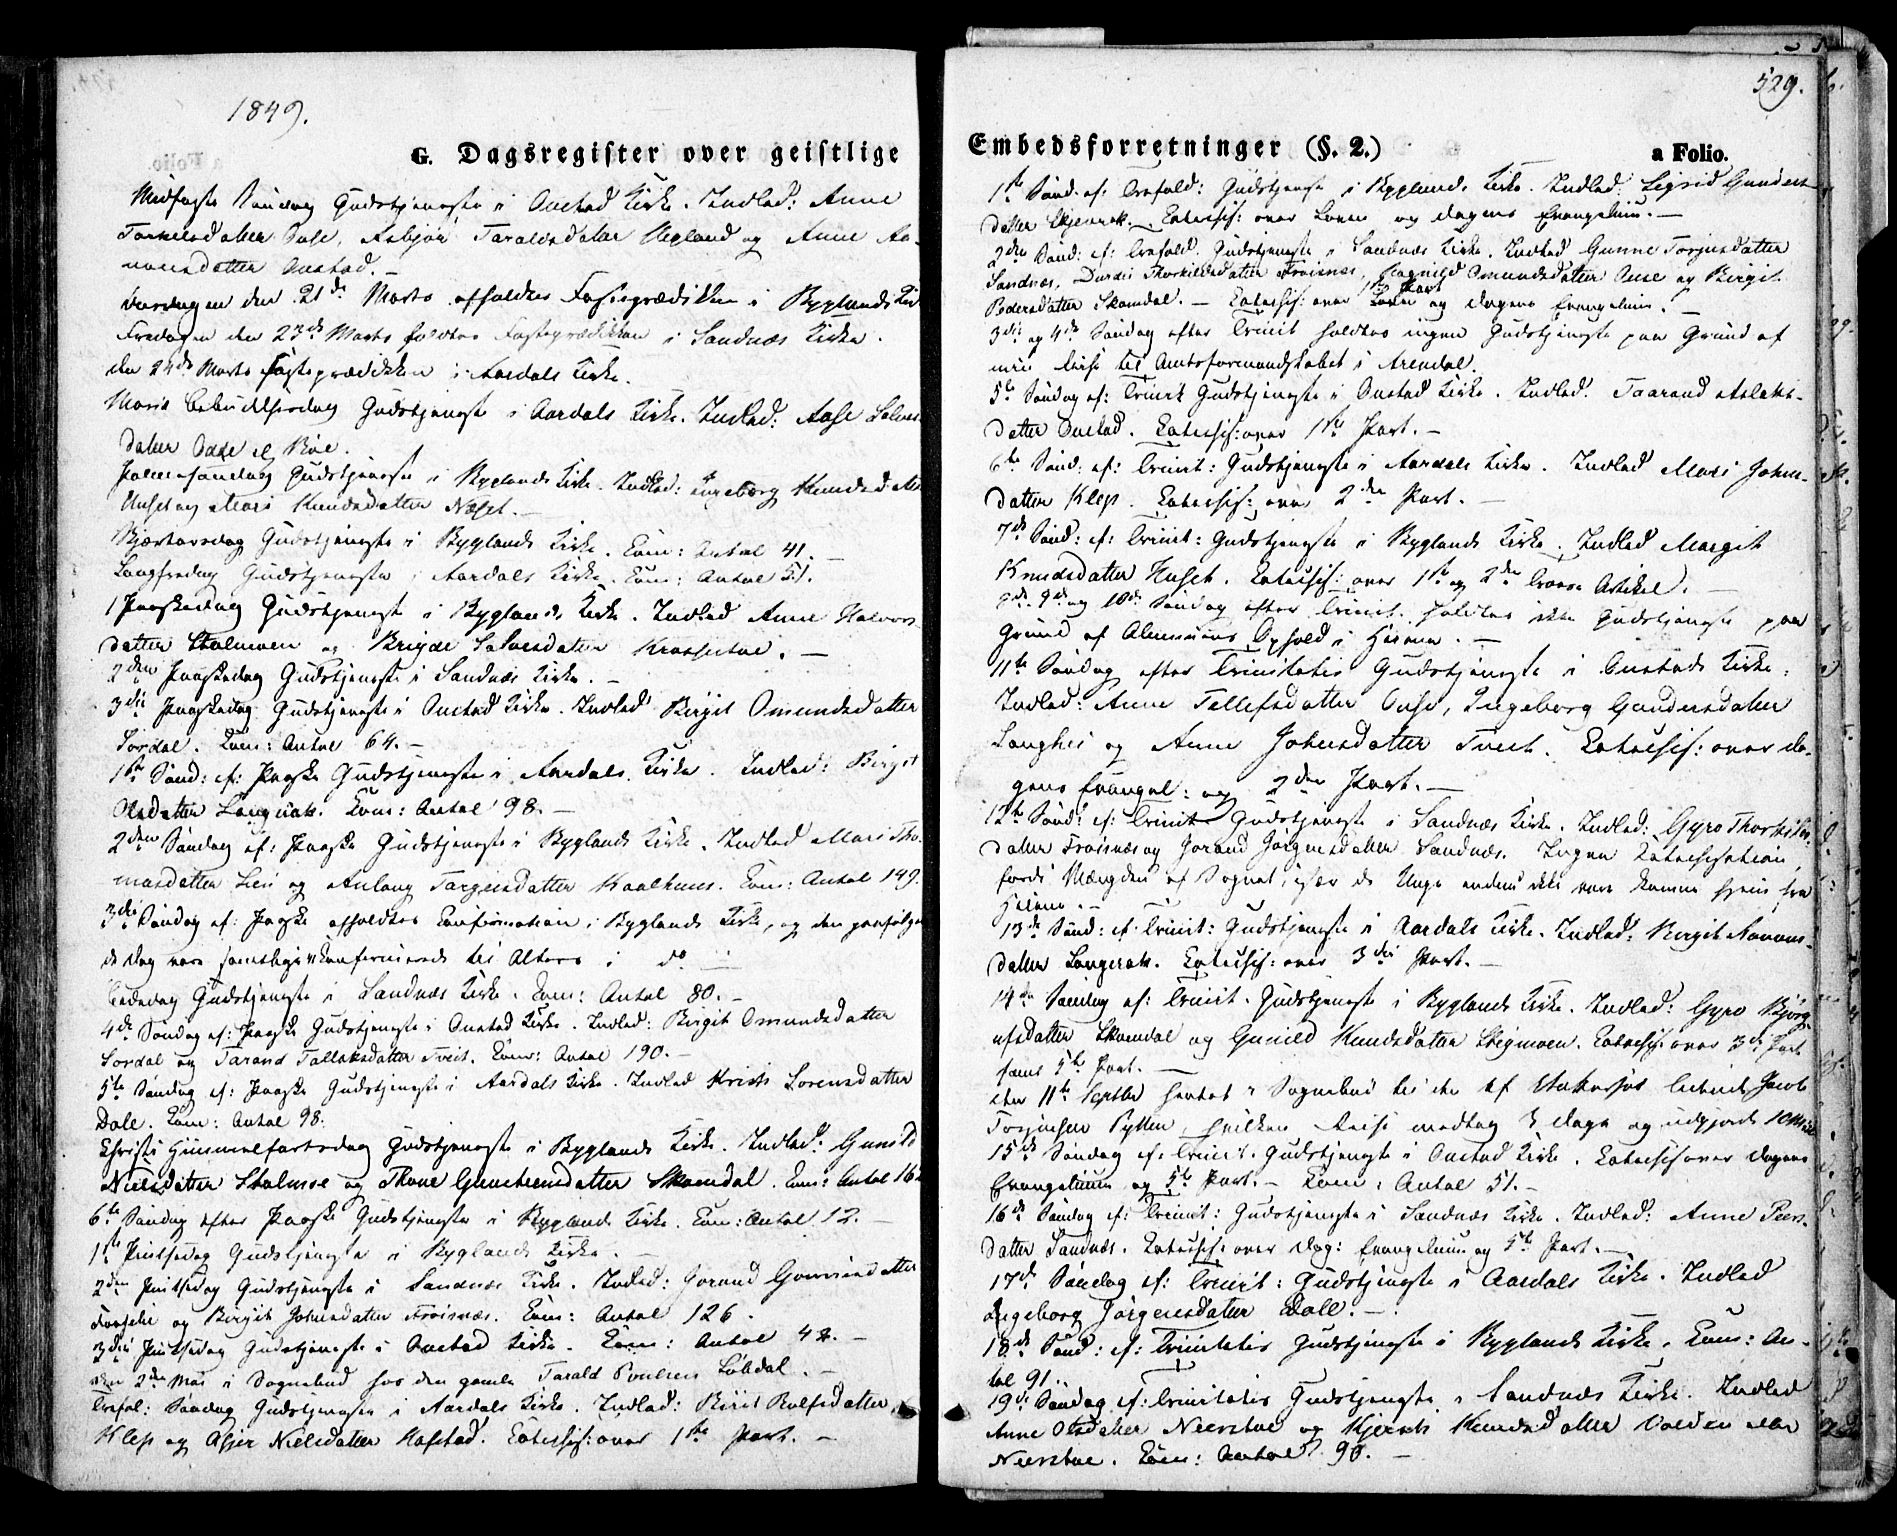 1849.
G. Dagsregister over geistlige
Midfaste Søndag Gudstjeneste i Austad Kirke. Indled: Anne
Torkelsdatter Ouse, Asbjør Taraldsdatter Hegland og Anne Aa-
nonsdatter Austad. –
Onsdagen den 21de Marts afholdtes Fasteprædikken i Byglands
Fredagen den 23de Marts holdtes Fasteprædikken i Sandnæs Kirke.
den 24de Marts Fasteprædikken i Aardals Kirke.
Mariæ Bebudelsesdag Gudstjeneste i Aardals Kirke. Indled: Aase
datter Bøe.
Palmesøndag Gudstjeneste i Byglands Kirke. Indled: Ingeborg
og Mari Knudsdatter Neset. –
Skjærtorsdag Gudstjeneste i Byglands Kirke. Com: Antal 41. –
Langfredag Gudstjeneste i Aardals Kirke. Com: Antal 51.
1 Paaskedag Gudstjeneste i Byglands Kirke. Indled Anne Halvors
datter og Salvesdatter –
2den Paaskedag Gudstjeneste i Sandnæs Kirke. –
3die Paaskedag Gudstjeneste i Austad Kirke. Indled Birgit Omundsdatter
Sordal. Com: Antal 64. –
1ste Sønd: ef: Paaske Gudstjeneste i Aardals Kirke. Indled: Birgit
Olsdatter Langerak. Com: Antal 98. –
2den Søndag ef: Paaske Gudstjeneste i Byglands Kirke. Indled Mari Tho-
masdatter Lien og Anlaug Targensdatter Com: Antal 149.
3die Søndag ef: Paaske afholdtes Confirmation i Byglands Kirke, og den paafølgen
de Dag vare samtlige Confirmerede til Alters i do –
Bededag Gudstjeneste i Sandnæs Kirke. Com: Antal 80. –
4de Søndag ef: Paaske Gudstjeneste i Austad Kirke. Indled: Birgit Omundsdatter
Sordal og Tarand Tallaksdatter Tveit. Com: Antal 190. –
5te Søndag ef: Paaske Gudstjeneste i Aardals Kirke. Indled Sorensdatter
Dale. Com: Antal 98.
Christi Himmelfartsdag Gudstjeneste i Byglands Kirke. Indled: Gunild
Nielsdatter og Thone Skomdal. Com: Antal
6te Søndag efter Paaske Gudstjeneste i Byglands Kirke. Com: Antal 12. –
1ste Pintsedag Gudstjeneste i Byglands Kirke. –
2den Pintsedag Gudstjeneste i Sandnæs Kirke. Indled: Jorand
og Birgit Johnsdatter Froisnæs. Com: Antal 126.
3die Pintsedag Gudstjeneste i Austad Kirke. Com: Antal –
den 2den Mai i Sognebud hos den gamle Tarald
Trefol: Søndag Gudstjeneste i Aardals Kirke. Indled: Birit Rolfsdatter
Klep og Nielsdatter Hafstad. Catechis: over 1ste Part. –
529.
Embedsforretninger (§. 2.)
a Folio.
1ste Sønd: ef: Trefold: Gudstjeneste i Byglands Kirke. Indled: Sigrid
datter Catechis: over Loven og Dagens Evangelium. –
2den Sønd: ef: Trefold: Gudstjeneste i Sandnæs Kirke. Indled Gunne Torjusdatter
Sandnæs, Thorkildsdatter Froisnæs, Ragnild Omundsdatter Ouse og Birgit
Pedersdatter Skomdal. – Catechis: over 1ste Part og Dagens Evangelium. –
3die og 4de Søndag efter Trinit holdtes ingen Gudstjeneste paa Grund af
min Reise til Amtsformandskabet i Arendal.
5te Søndag ef: Trinit Gudstjeneste i Austad Kirke. Indled: Taarand Aslaks-
datter Austad. Catechis: over 1ste Part. –
6te Sønd: ef: Trinit: Gudstjeneste i Aardals Kirke. Indled Mari Johns-
datter Klep. Catechis: over 2den Part. –
7de Sønd: ef: Trinit: Gudstjeneste i Byglands Kirke. Indled Margit
Knudsdatter Huset. Catechis: over 1ste og 2den Troens Artikel. –
8de, 9de og 10de Søndag efter Trinit. holdtes ikke Gudstjeneste paa
Grund af Almuens Ophold i Heierne. –
11te Søndag efter Trinitatis Gudstjeneste i Austads Kirke.
Indled: Anne Tellefsdatter Ouse, Ingeborg Gundersdatter
Langhei og Anne Johnsdatter Tveit. Catechis: over Da-
gens Evangel: og 2den Part. –
12te Sønd: ef: Trinit Gudstjeneste i Sandnæs Kirke. Indled: Gyro Thorkils-
datter Froisnæs og Jorand Jørgensdatter Sandnæs. Ingen Catechisation,
fordi Mængden af Sognet, især de Unge endnu ikke vare komne hjem fra
Heierne. –
13de Sønd: ef: Trinit: Gudstjeneste i Aardals Kirke. Indled: Birgit Aanons-
datter Langerak. Catechis: over 3die Part. –
14de Søndag ef: Trinit. Gudstjeneste i Byglands Kirke. Indled: Gyro Bjørg-
ufsdatter Skomdal og Gunild Knudsdatter Catechis: over 3die Part
samt 5te Part. –
den 11te Septbr hentet i Sognebud til den af Jacob
Torjussen hvilken Reise medtog 3 Dage og udgjorde
15de Søndag ef: Trinit. Gudstjeneste i Austad Kirke. Catechis over Dagens
Evangelium og 5te Part. – Com: Antal 51. –
16de Søndag ef: Trinit: Gudstjeneste i Sandnæs Kirke. Indled: Anne Peers-
datter Sandnæs. Catechis: over Dag: Evangelium og 5te Part. –
17de Søndag ef: Trinit: Gudstjeneste i Aardals Kirke. Indled
Ingeborg Jørgensdatter Dale. –
18de Sønd: ef: Trinitatis Gudstjeneste i Byglands Kirke. Com: An-
tal 91.
19de Søndag ef: Trinitatis Gudstjeneste i Sandnæs Kirke. Indled
Anne Olsdatter Neerstue og Knudsdatter
Neerstue. Com: Antal 90. –